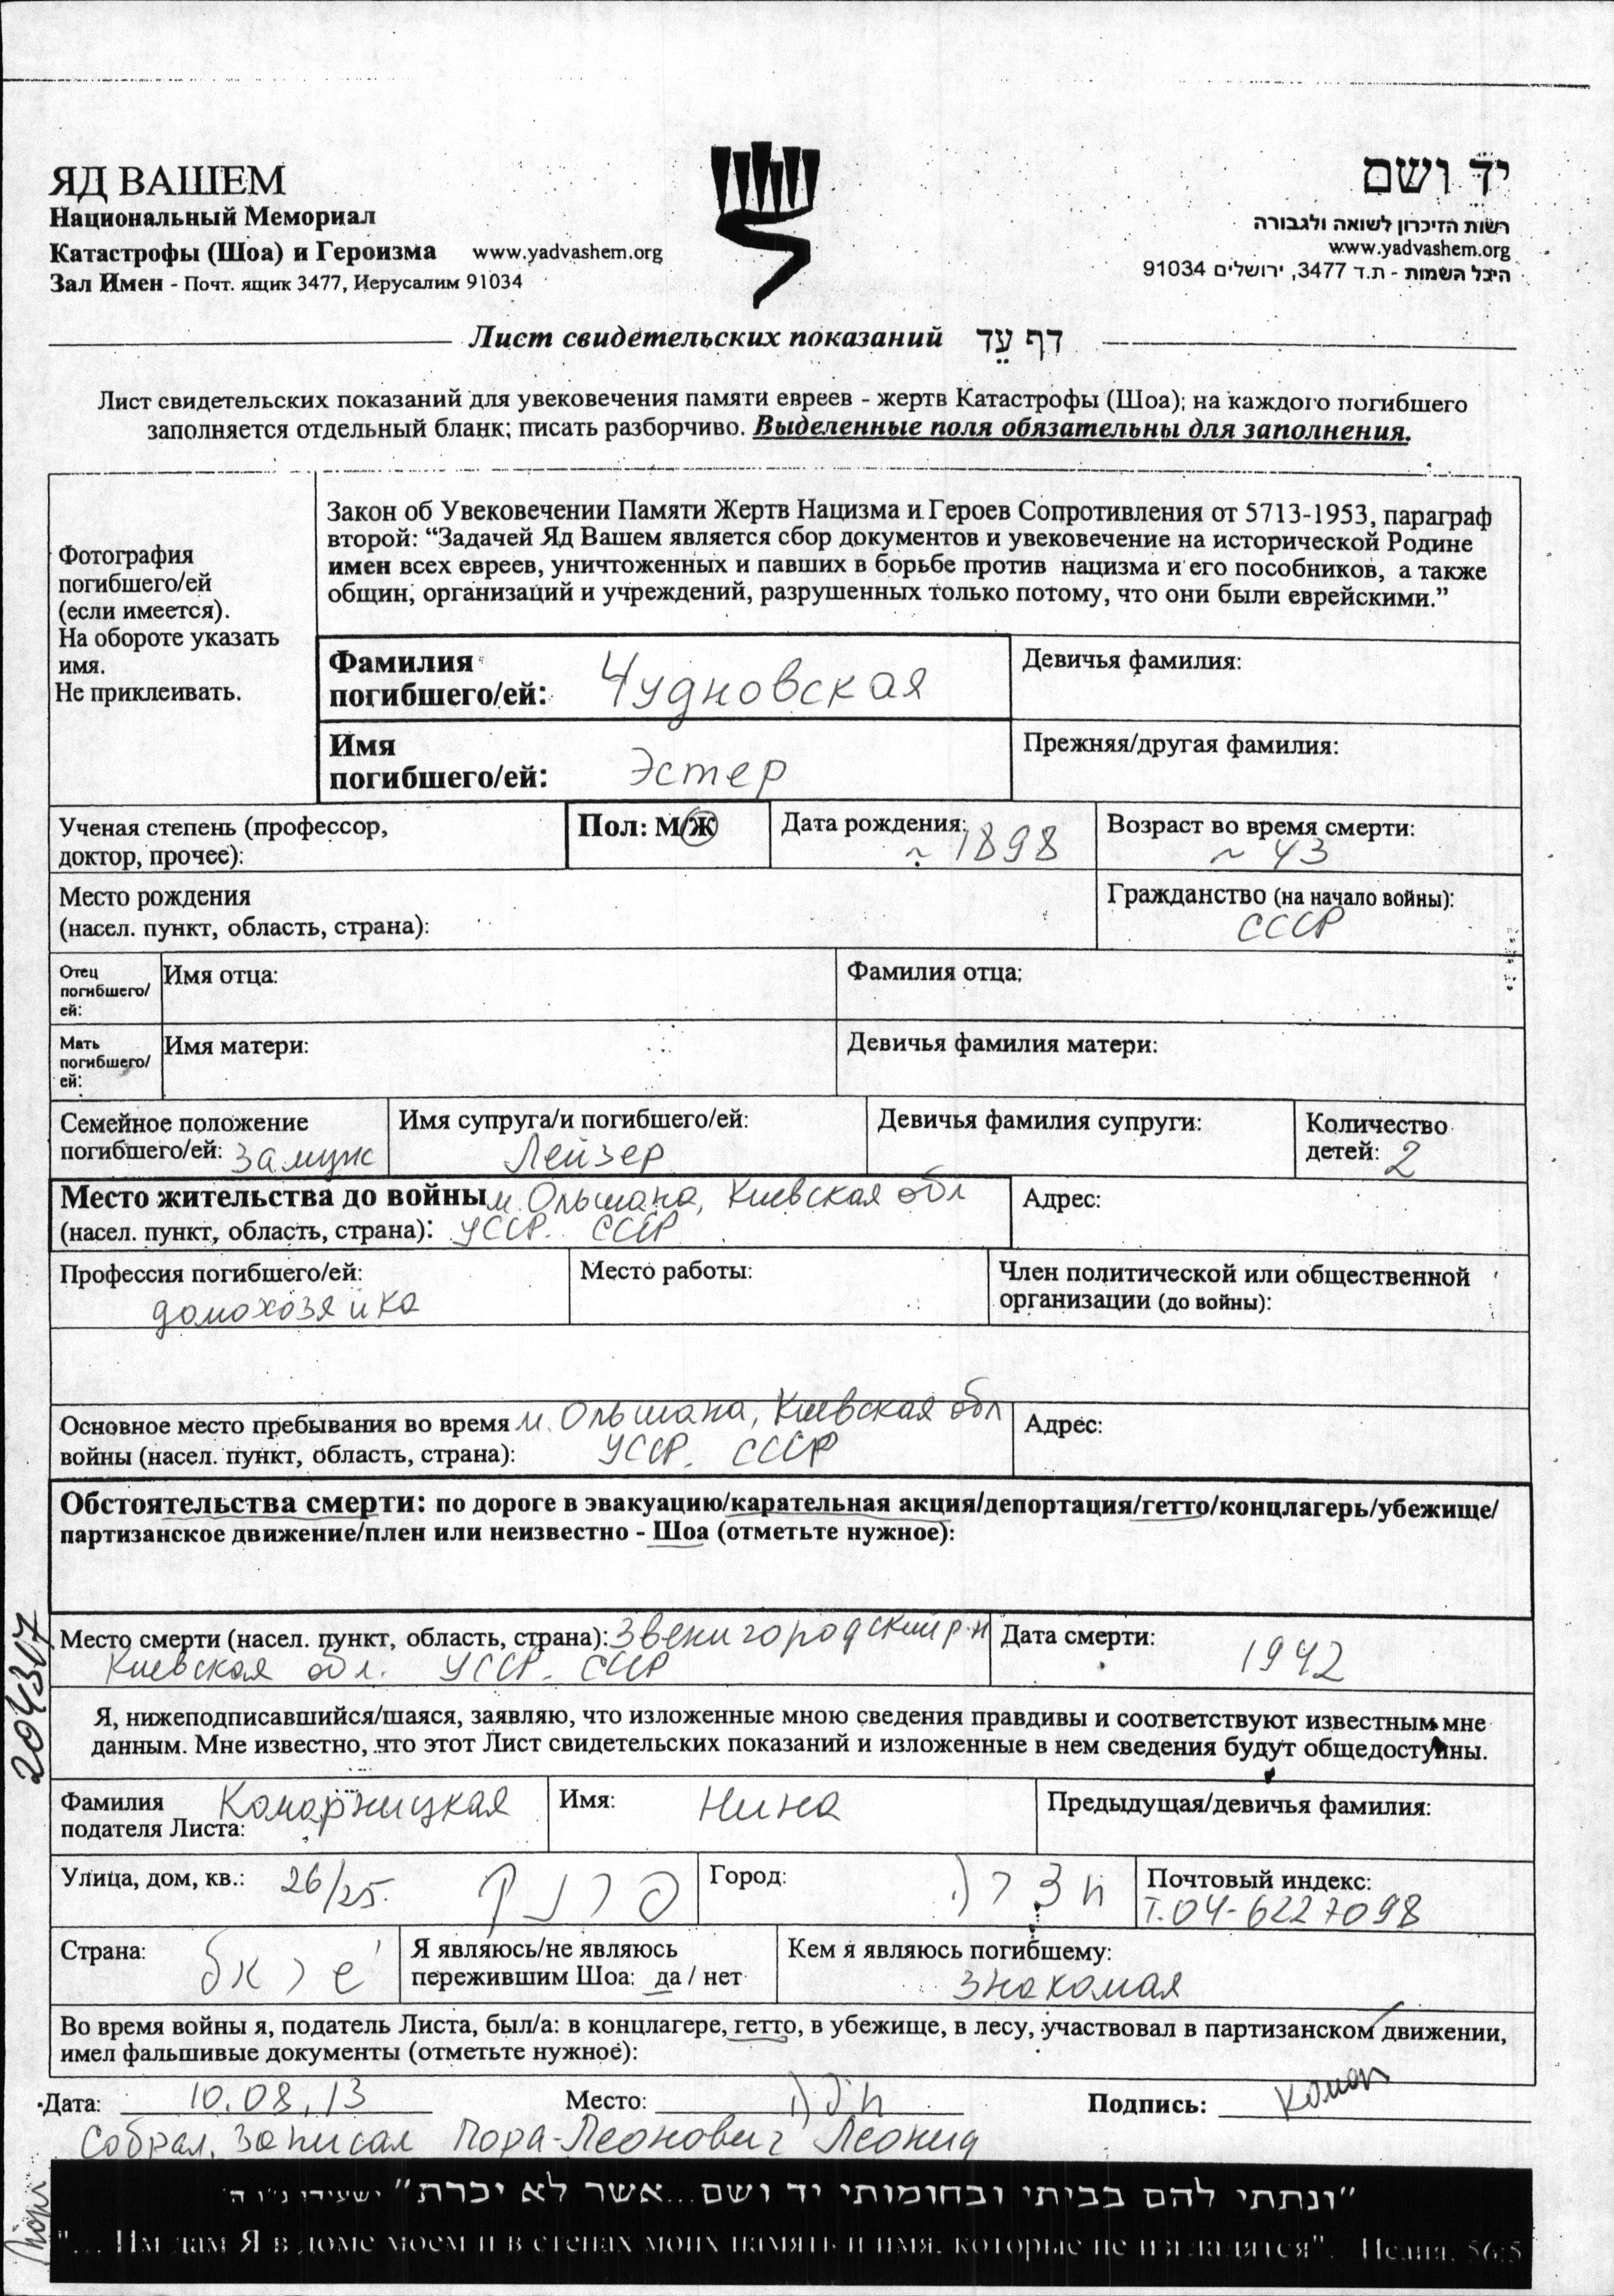 ЯД ВАШЕМ
Национальный Мемориал
Катастрофы (Шоа) и Героизма www.yadvashem.org
Зал Имен - Почт. ящик 3477, Иерусалим 91034
יד ושם
רשות הזיכרון לשואה ולגבורה
www.yadvashem.org
היכל השמות - ת.ד 3477, ירושלים 91034
Лист свидетельских показаний דף עֵד
Лист свидетельских показаний для увековечения памяти евреев - жертв Катастрофы (Шоа); на каждого погибшего
заполняется отдельный бланк; писать разборчиво. Выделенные поля обязательны для заполнения.
Фотография
погибшего/ей
(если имеется).
На обороте указать
имя.
Не приклеивать.
Закон об Увековечении Памяти Жертв Нацизма и Героев Сопротивления от 5713-1953, параграф
второй: “Задачей Яд Вашем является сбор документов и увековечение на исторической Родине
имен всех евреев, уничтоженных и павших в борьбе против нацизма и его пособников, а также
общин, организаций и учреждений, разрушенных только потому, что они были еврейскими.”
Фамилия
погибшего/ей: Чудновская
Девичья фамилия:
Имя
погибшего/ей: Эстер
Прежняя/другая фамилия:
Ученая степень (профессор,
доктор, прочее):
Пол: М/Ж
Дата рождения:
~ 1898
Возраст во время смерти:
~ 43
Место рождения
(насел. пункт, область, страна):
Гражданство (на начало войны):
СССР
Отец
погибшего/
ей:
Имя отца:
Фамилия отца:
Мать
погибшего/
ей:
Имя матери:
Девичья фамилия матери:
Семейное положение
погибшего/ей: замуж
Имя супруга/и погибшего/ей:
Лейзер
Девичья фамилия супруги:
Количество
детей: 2
Место жительства до войны м. Ольшана, Киевская обл
(насел. пункт, область, страна): УССР. СССР
Адрес:
Профессия погибшего/ей:
домохозяйка
Место работы:
Член политической или общественной
организации (до войны):
Основное место пребывания во время м. Ольшана, Киевская обл
войны (насел. пункт, область, страна): УССР. СССР
Адрес:
Обстоятельства смерти: по дороге в эвакуацию/карательная акция/депортация/гетто/концлагерь/убежище/
партизанское движение/плен или неизвестно - Шоа (отметьте нужное):
Место смерти (насел. пункт, область, страна): Звенигородский р-н
Киевская обл. УССР. СССР
Дата смерти:
1942
204307
Я, нижеподписавшийся/шаяся, заявляю, что изложенные мною сведения правдивы и соответствуют известным мне
данным. Мне известно, что этот Лист свидетельских показаний и изложенные в нем сведения будут общедоступны.
Фамилия
подателя Листа: Комарницкая
Имя: Нина
Предыдущая/девичья фамилия:
Улица, дом, кв.: 26/25.
Город:
Почтовый индекс:
Т. 04-6227098
Страна:
Я являюсь/не являюсь
пережившим Шоа: да / нет
Кем я являюсь погибшему:
знакомая
Во время войны я, податель Листа, был/а: в концлагере, гетто, в убежище, в лесу, участвовал в партизанском движении,
имел фальшивые документы (отметьте нужное):
Дата: 10.08.13 Место: Подпись: Комар
Собрал, записал Пора-Леонович Леонид
"ונתתי להם בביתי ובחומותי יד ושם...אשר לא יכרת" ישעיהו נ"ו ה'
"... Им дам Я в доме моем и в стенах моих память и имя, которые не изгладятся". Исаия, 56:5